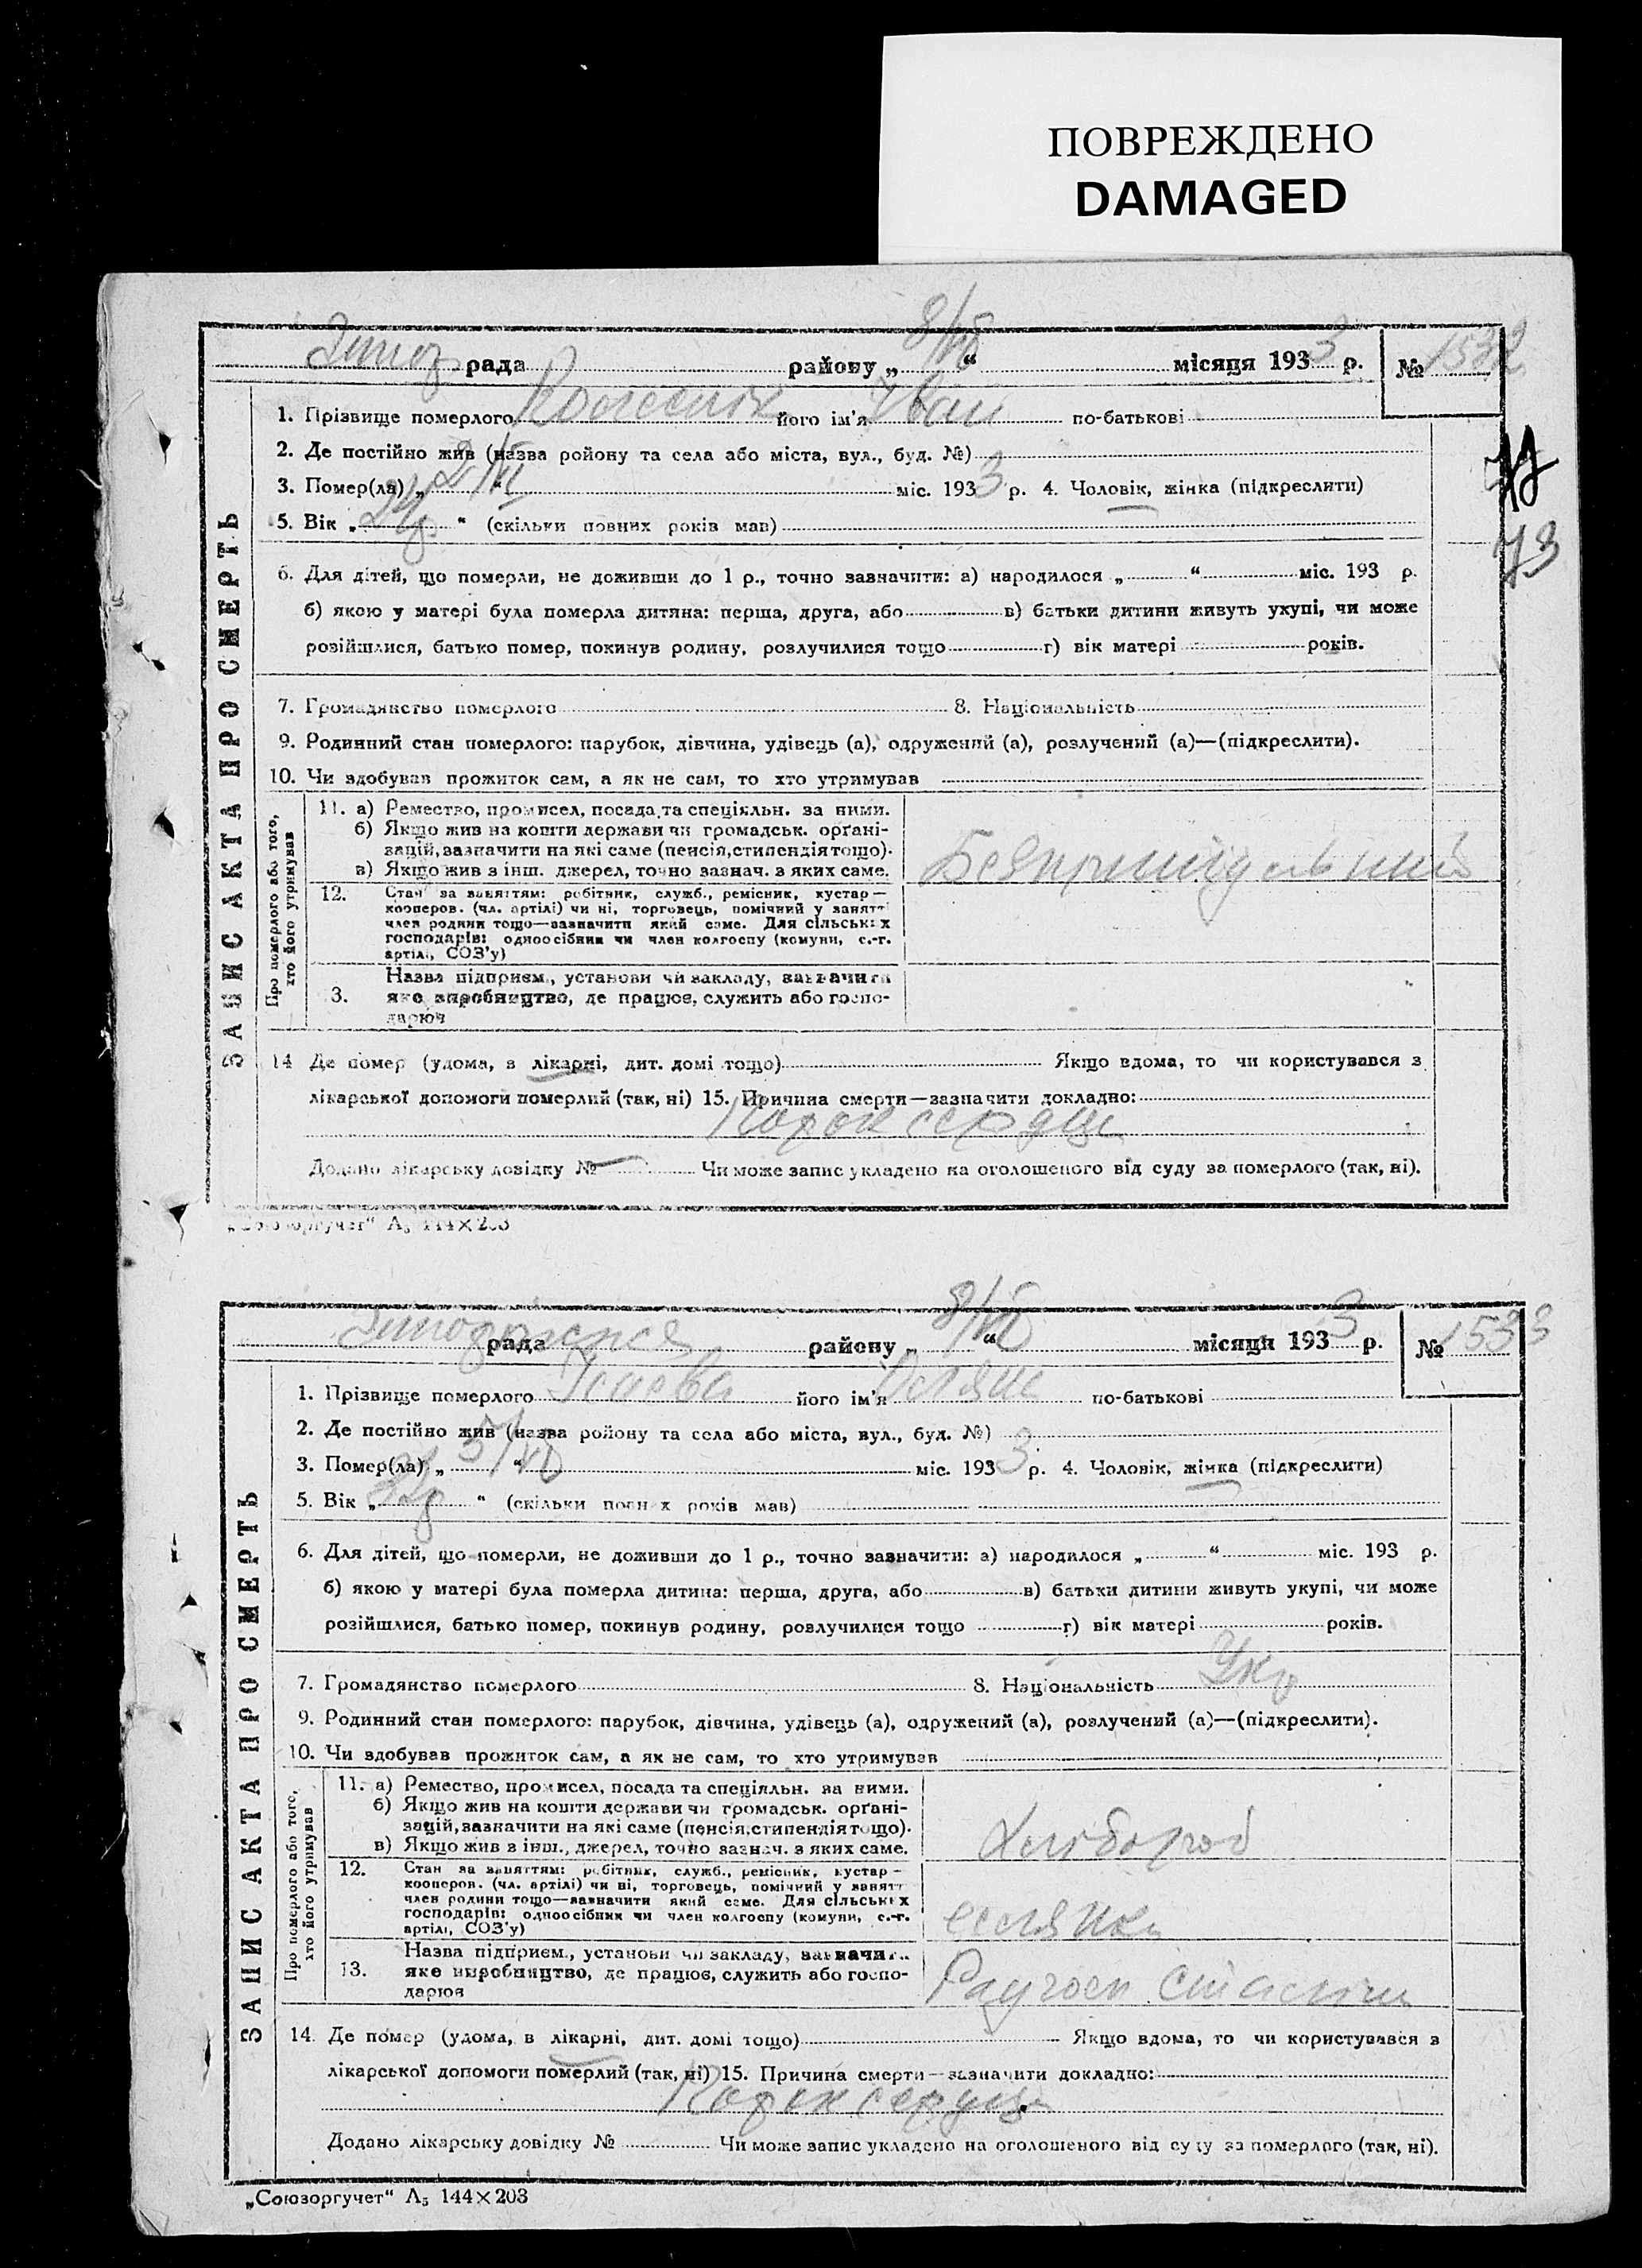 ПОВРЕЖДЕНО
DAMAGED
рада району „ 8/VII “ місяця 1933 р. № 1532
1. Прізвище померлого його ім'я Іван по-батькові
2. Де постійно жив (назва ройону та села або міста, вул., буд. №)
3. Помер(ла) „ “ міс. 1933 р. 4. Чоловік, жінка (підкреслити)
5. Вік „ “ (скільки повних років мав)
73
6. Для дітей, що померли, не доживши до 1 р., точно зазначити: а) народилося „ “ міс. 193 р.
б) якою у матері була померла дитяна: перша, друга, або в) батьки дитини живуть укупі, чи може
розійшлися, батько помер, покинув родину, розлучилися тощо г) вік матері років.
7. Громадянство померлого 8. Національність
9. Родинний стан померлого: парубок, дівчина, удівець (а), одружений (а), розлучений (а)—(підкреслити).
10. Чи здобував прожиток сам, а як не сам, то хто утримував
ЗАПИС АКТА ПРО СМЕРТЬ
Про померлого або того,
хто його утримував
11. а) Ремество, промисел, посада та спеціяльн. за ними.
б) Якщо жив на кошти держави чи громадськ. органі-
зацій, зазначити на які саме (пенсія, стипендія тощо).
в) Якщо жив з інш. джерел, точно зазнач. з яких саме.
12. Стан за заняттям: робітник, служб., ремісник, кустар—
кооперов. (чл. артілі) чи ні, торговець, помічний у занятт
член родини тощо—зазначити який саме. Для сільських
господарів: одноосібник чи член колгоспу (комуни, с.-г.
артілі, СОЗ'у)
Назва підприєм., установи чи закладу, зазначити
3. яке виробництво, де працює, служить або госпо-
дарює
14 Де помер (удома, в лікарні, дит. домі тощо) Якщо вдома, то чи користувався з
лікарської допомоги померлий (так, ні) 15. Причина смерти—зазначити докладно:
Порок сердця
Додано лікарську довідку № Чи може запис укладено на оголошеного від суду за померлого (так, ні).
„Союзоргучет“ А₅ 144×203
рада району „ 8/VII “ місяця 1933 р. № 1533
1. Прізвище померлого його ім'я по-батькові
2. Де постійно жив (назва ройону та села або міста, вул., буд. №)
3. Помер(ла) „ “ міс. 1933 р. 4. Чоловік, жінка (підкреслити)
5. Вік „ “ (скільки повних років мав)
6. Для дітей, що померли, не доживши до 1 р., точно зазначити: а) народилося „ “ міс. 193 р.
б) якою у матері була померла дитина: перша, друга, або в) батьки дитини живуть укупі, чи може
розійшлися, батько помер, покинув родину, розлучилися тощо г) вік матері років.
7. Громадянство померлого 8. Національність Укр
9. Родинний стан померлого: парубок, дівчина, удівець (а), одружений (а), розлучений (а)—(підкреслити).
10. Чи здобував прожиток сам, а як не сам, то хто утримував
ЗАПИС АКТА ПРО СМЕРТЬ
Про померлого або того,
хто його утримував
11. а) Ремество, промисел, посада та спеціяльн. за ними.
б) Якщо жив на кошти держави чи громадськ. органі-
зацій, зазначити на які саме (пенсія, стипендія тощо).
в) Якщо жив з інш. джерел, точно зазнач. з яких саме.
Хлібороб
12. Стан за заняттям: робітник, служб., ремісник, кустар—
кооперов. (чл. артілі) чи ні, торговець, помічний у занятт
член родини тощо—зазначити який саме. Для сільських
господарів: одноосібник чи член колгоспу (комуни, с.-г.
артілі, СОЗ'у)
селянка
Назва підприєм., установи чи закладу, зазначити
13. яке виробництво, де працює, служить або госпо-
дарює
14. Де помер (удома, в лікарні, дит. домі тощо) Якщо вдома, то чи користувався з
лікарської допомоги померлий (так, ні) 15. Причина смерти—зазначити докладно:
Порок сердця
Додано лікарську довідку № Чи може запис укладено на оголошеного від суду за померлого (так, ні).
„Союзоргучет“ А₅ 144×203